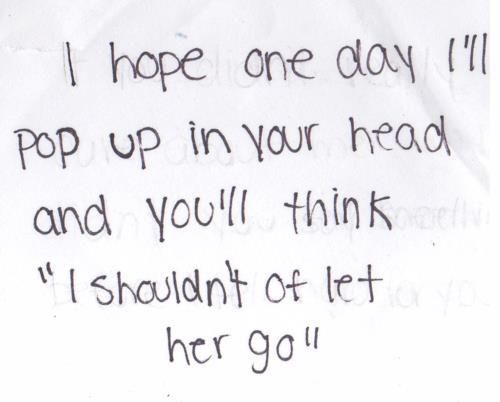 I hope one day I'll
pop up in your head
and you'll think
"I shouldn't of let
her go"